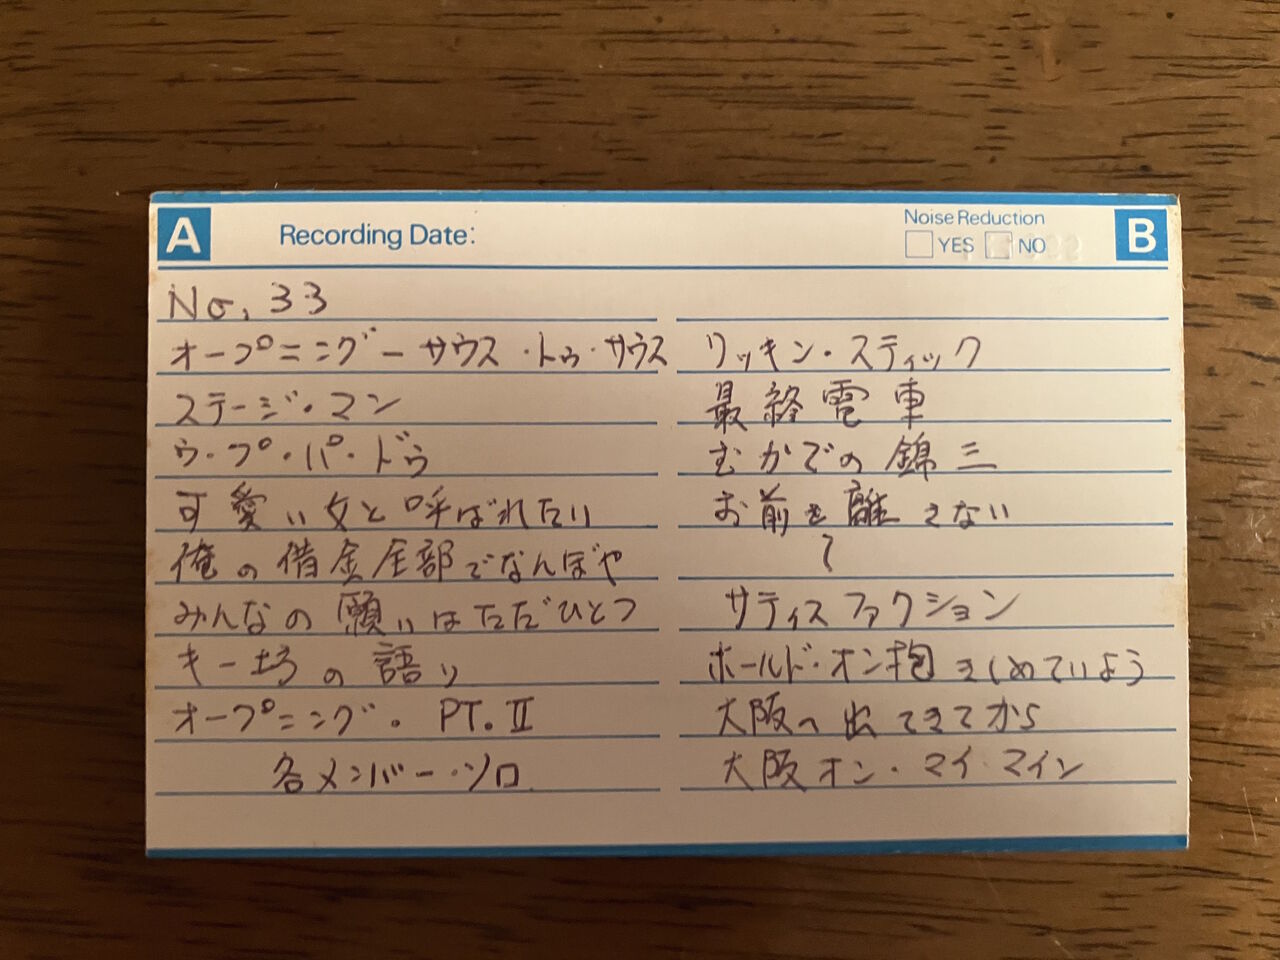 A
Recording Date:
Noise Reduction
YES NO
B
No. 33
オープニングーサウス・トゥ・サウス
ステージ・マン
ウ・プ・パ・ドゥ
可愛い女と呼ばれたい
俺の借金全部でなんぼや
みんなの願いはただひとつ
キー坊の語り
オープニング・PT.Ⅱ
各メンバー・ソロ
リッキン・スティック
最終電車
むかでの錦三
お前を離さない
?
サティスファクション
ホールド・オン抱きしめていよう
大阪へ出てきてから
大阪オン・マイ・マイン